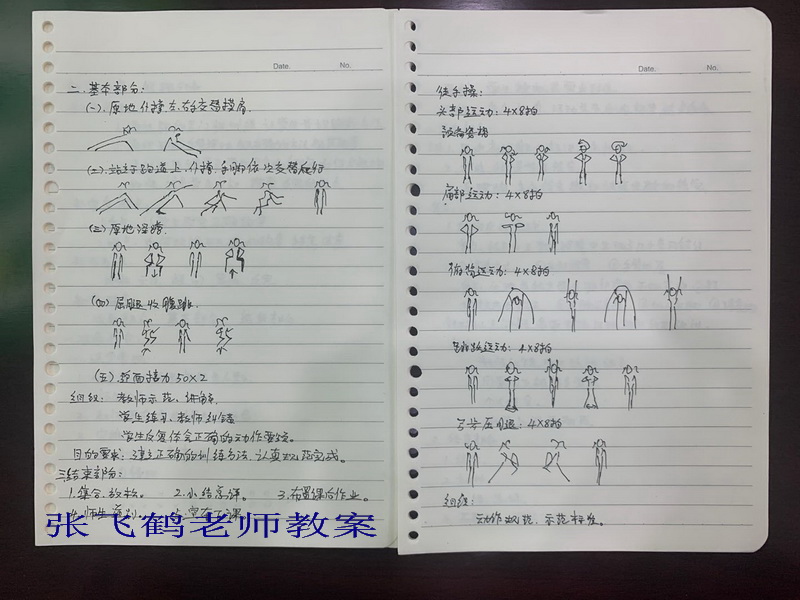 Date. No.
二、基本部分:
(一)、原地仆撑左、右交替摸肩.
(二)、站于跑道上,仆撑,手脚依次交替爬行
(三)原地深蹲.
(四)屈腿收腹跳.
(五)迎面接力 50×2
组织:教师示范、讲解.
学生练习、教师纠错
学生反复体会正确的动作要领。
目的要求:建立正确的训练方法.认真规范完成。
三结束部分:
1.集合、放松。 2.小结讲评。 3.布置课后作业。
张飞鹤老师教案
Date. No.
徒手操:
头部运动:4×8拍
预备姿势
肩部运动:4×8拍
俯背运动:4×8拍
运动:4×8拍
弓步压腿:4×8拍
组织:
动作规范、示范标准。